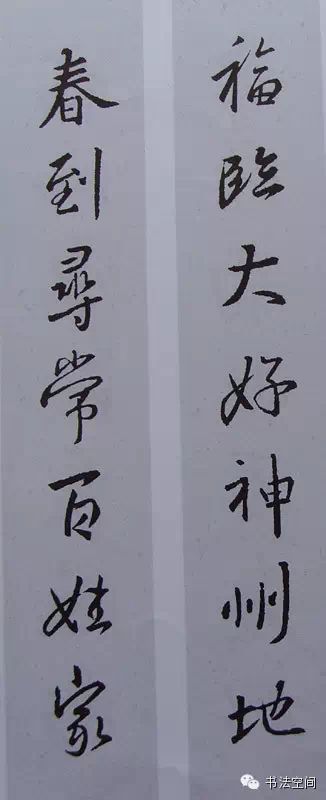 福臨大好神州地
春到尋常百姓家
书法空间